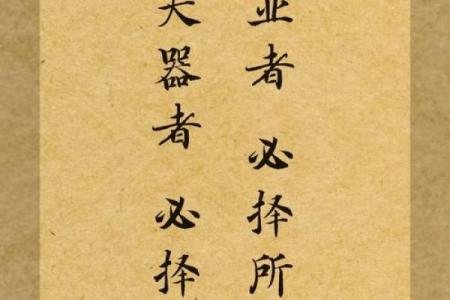 者 必择所
器者 必择